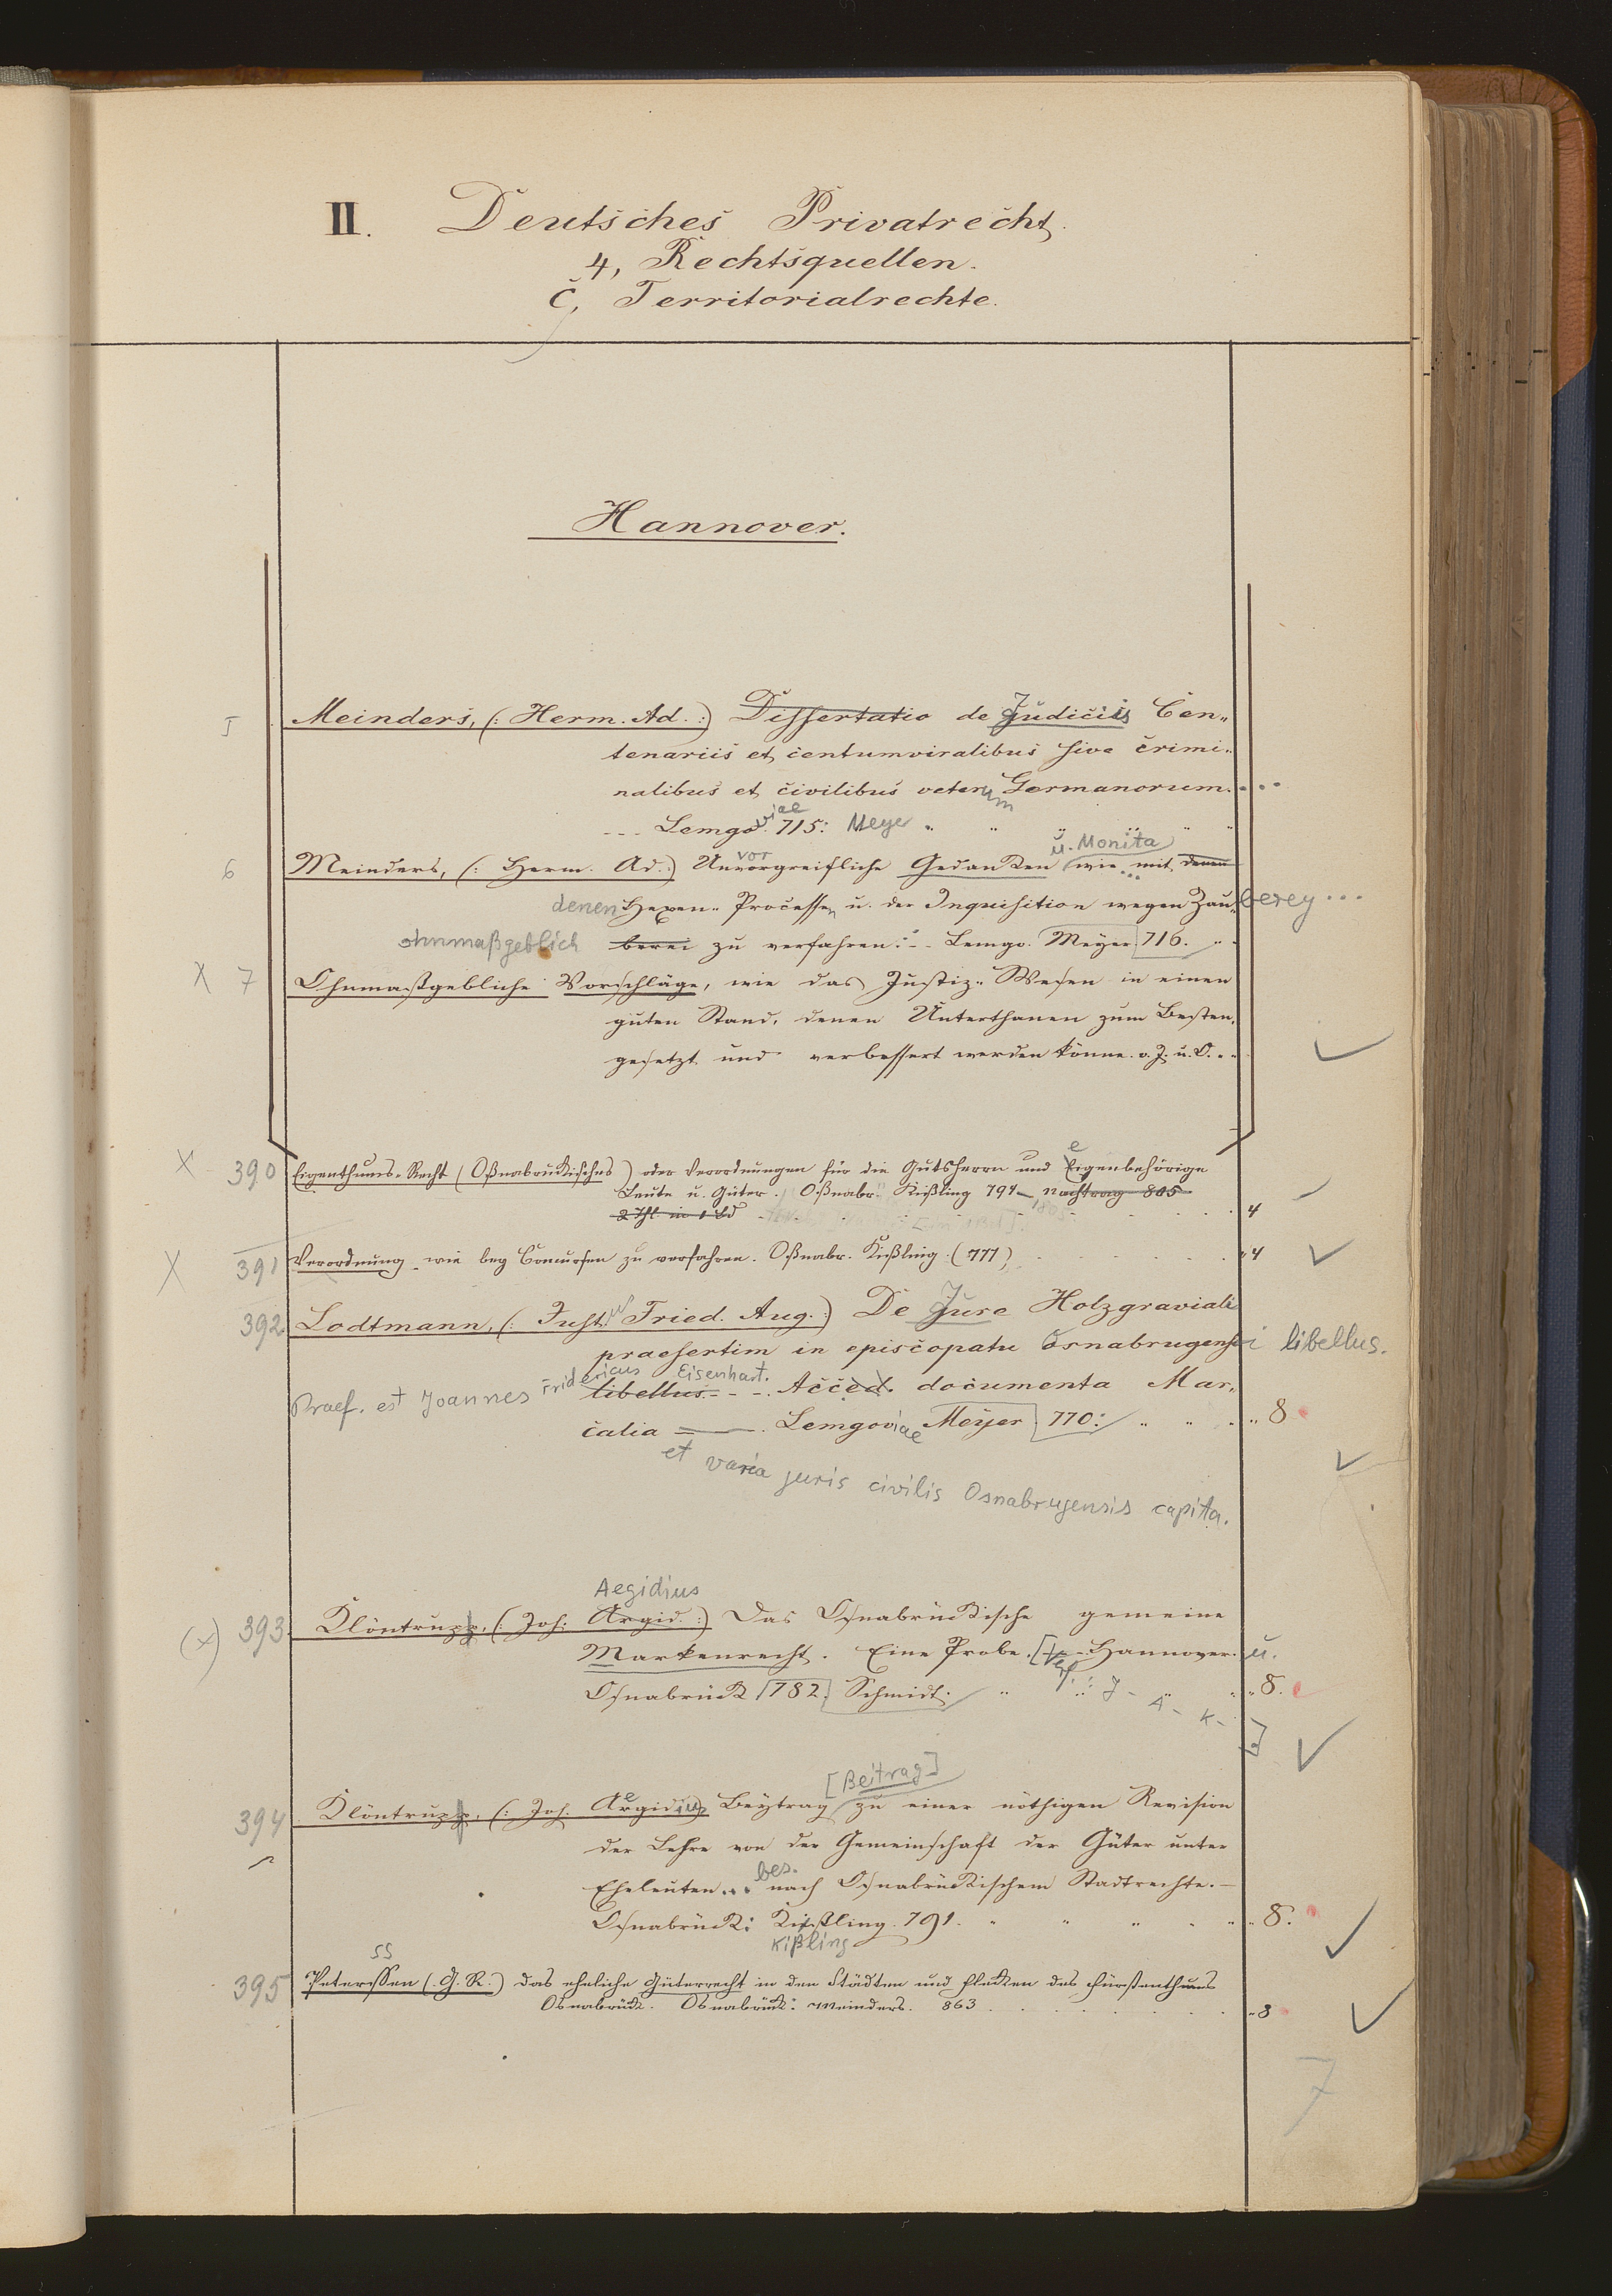 II. Deutsches Privatrecht.
4, Rechtsquellen.
C, Territorialrechte.
Hannover.
5 Meinders, (: Herm. Ad. :) Dissertatio de Judiciis Cen„
tenariis et centumviralibus sive crimi„
nalibus et civilibus veterum Germanorum. ...
--- Lemgoviae 715: Meyer " " " " " "
u. Monita
vor
6 Meinders, (: Herm. Ad. :) Unvorgreifliche Gedanken wie mit denen
denen Hexen„ Processen u. der Inquisition wegen Zau„berey ...
ohnmaßgeblich berei zu verfahren: -- Lemgo. Meyer 716. "
X 7 Ohnmastgebliche Vorschläge, wie das Justiz„ Wesen in einen
guten Stand, denen Unterthanen zum Besten,
gesetzt und verbessert werden könne. o. J. u. O. -- ✓
e
X 390 Eigenthums-Recht (Oßnabrückisches) oder Verordnungen für die Gutsherrn und Eigenbehörige
Leute u. Güter. Oßnabr. Kißling 794 - Nachtrag 805
2 Thl. in 1 Bd 1805 4
X 391 Verordnung wie bey Concursen zu verfahren. Oßnabr. Kißling. (777) " 4 ✓
392. Lodtmann, (: Just. Fried. Aug. :) De Jure Holzgraviali
praesertim in episcopatu Osnabrugensi libellus.
Praef. est Joannes Fridericus Eisenhart.
libellus --- Acced. documenta Mar„
calia Lemgoviae Meyer 770: " " " " 8
et varia juris civilis Osnabrugensis capita. ✓
Aegidius
(x) 393. Klöntrupp, (: Joh: Argid. :) Das Osnabrückische gemeine
Markenrecht. Eine Probe. [Verf.: J- A- K-] Hannover. u.
Osnabrück 782. Schmidt. " " " " 8. ✓
[Beitrag]
394 Klöntrupp, (: Joh. Aegidius) Beytrag zu einer nöthigen Revision
der Lehre von der Gemeinschaft der Güter unter
Eheleuten... bes. nach Osnabrückischem Stadtrechte. -
Osnabrück: Kißling. 791. " " " " " 8. ✓
Kißling
ss
395 Peterssen (G. R.) das eheliche Güterrecht in den Städten und Flecken des Fürstenthums
Osnabrück. Osnabrück: Meinders. 863 " 8 ✓
7